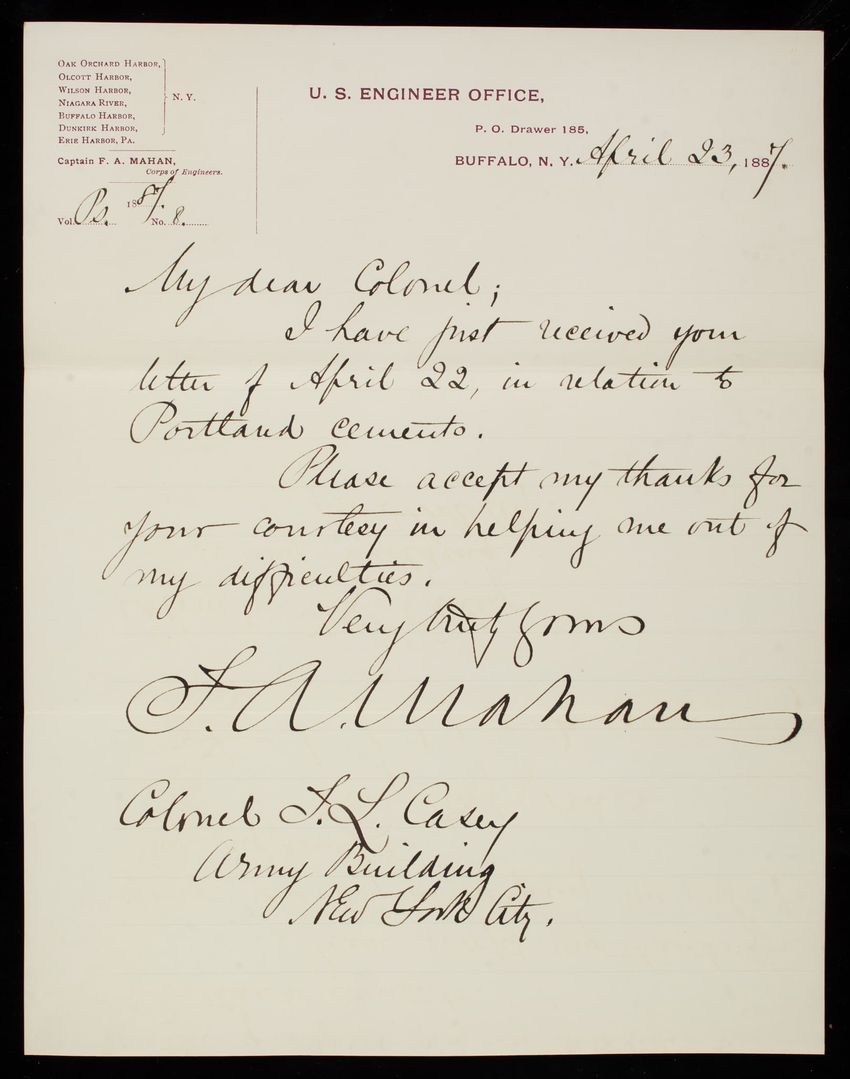 OAK ORCHARD HARBOR,
OLCOTT HARBOR,
WILSON HARBOR,
NIAGARA RIVER,
BUFFALO HARBOR,
DUNKIRK HARBOR,
ERIE HARBOR, PA.
N. Y.
Captain F. A. MAHAN,
Corps of Engineers.
Vol. Ps. 1887. No. 8.
U. S. ENGINEER OFFICE,
P. O. Drawer 185,
BUFFALO, N. Y. April 23, 1887.
My dear Colonel;
I have just received your
letter of April 22, in relation to
Portland cements.
Please accept my thanks for
your courtesy in helping me out of
my difficulties.
Very truly yours
F. A. Mahan
Colonel T. L. Casey
Army Building
New York City.